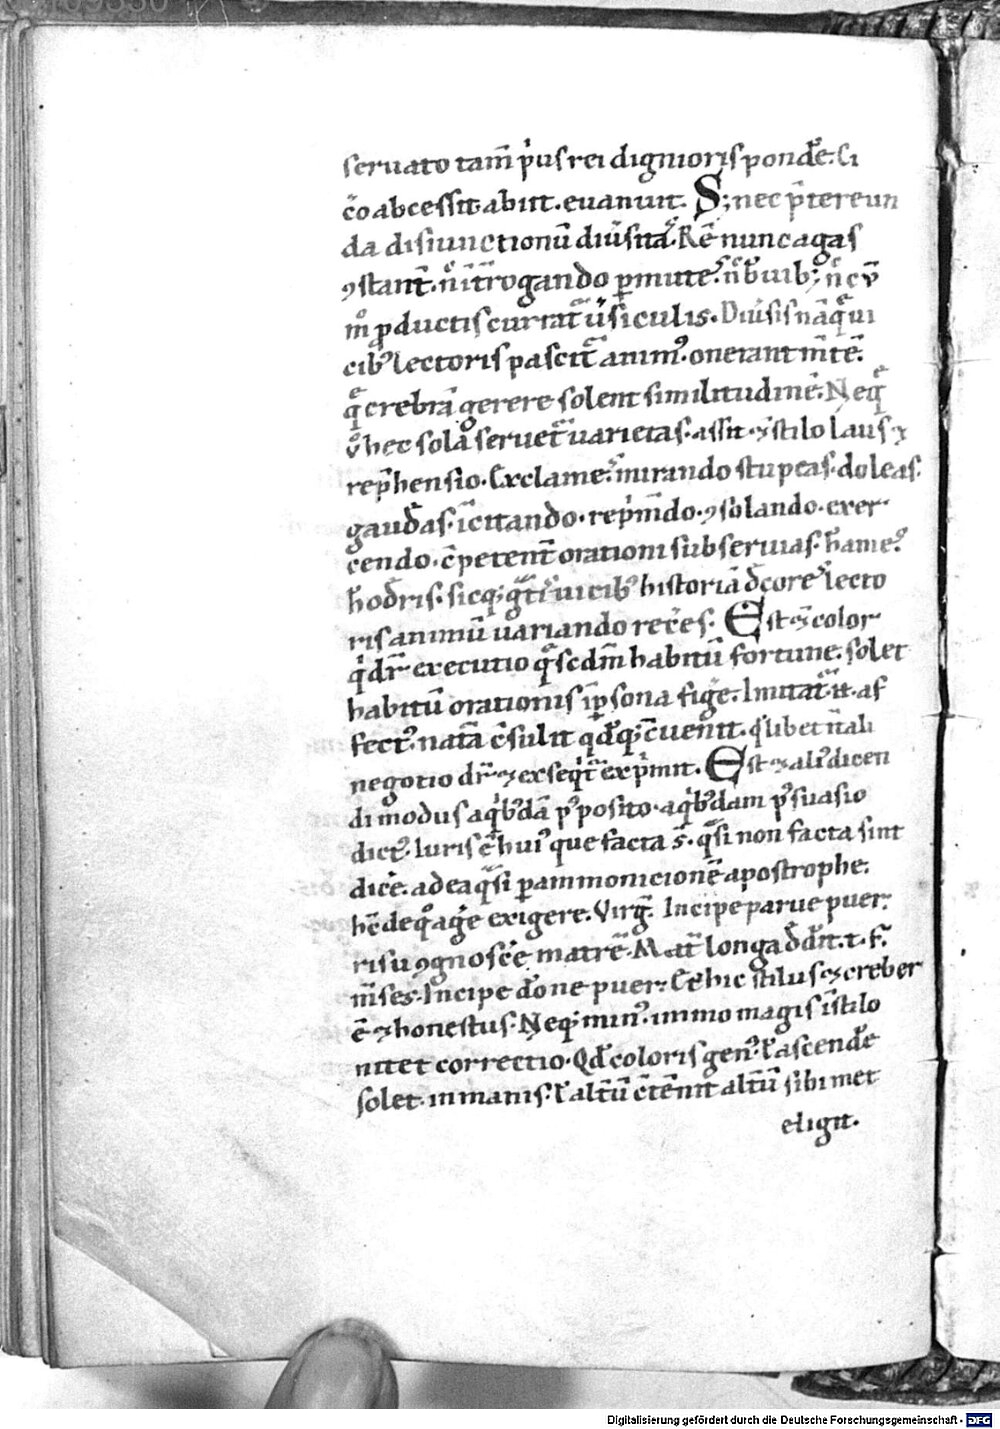 servato tam̄ p̍us rei dignioris pond̄e. Ci
c̄o abcessit abiit. evanuit. S; nec p̄tereun
da disiunctionū diūsitaͣ. Rē nunc agas
ꝯstant̄. nͦ īt̄rogando ꝑmuteˢ. n̄ breuib; n̄c v̄
mͦ ꝓductis curratͣ ūsiculis. Diūsis nāqͣ ui
cibꝰ lectoris pascitͣ animꝰ. onerant m̄tē.
qͣ crebrā gerere solent similitudinē. Neqͣ
vͦ hec sola seruetͣ uarietas. assit ⁊ stilo laus ⁊
rep̄hensio. Exclameˢ. mirando stupeas. doleas.
gaud̄as. īcitando. rep̍m̄do. ꝯsolando. exer
cendo. c̄petent̄ orationi subseruias.
historiā d̄core lecto
ris animū uariando rec̄es. Est ⁊ color
qͥ dr̄ executio qͣ scd̄m habitū fortune. solet
habitū orationis īpsona fiḡe. Imitatͣ it. af
fectꝰ. natā c̄sulit qd̄ q; c̄uenit. qͥlibet tali
negotio dr̄ ⁊ exseqͥtͣ exp̍mit. Est ⁊ aliꝰ dicen
di modus a qͥbꝰdā pͦposito. a qͥbꝰdam pͥsuasio
dictꝰ. Iuris ē huiꝰ que facta s̄. qͣsi non facta sint
dic̄e. ad ea qͣsi ꝑ ammonicionē apostrophe.
hēde qͦ aḡe exigere. Virḡ. Incipe parue puer
risu ꝯgnosc̄e matrē. Mat̄ longa d̄ d̄n̄t. t. f̄.
m̄ses. Incipe d̄one puer. C̄ hic stilus ⁊ creber
ē ⁊ honestus. Neq; minꝰ. immo magis ī stilo
nitet correctio. Qd̄ coloris genꝰ ł ascend̄e
solet. inmanis. ł alt̄ū c̄tēnit alt̄ū sibi met
eligit.
Digitalisierung gefördert durch die Deutsche Forschungsgemeinschaft - DFG